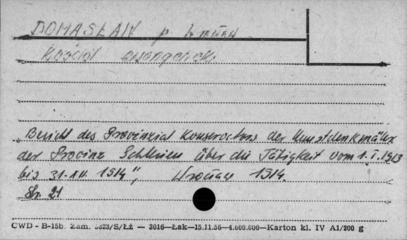 DOMASŁAW p. Wrocław
Kościół ewangelick.
„Bericht des Provinzial Konservators der Kunstdenkmäler
der Provinz Schlesien über die Tätigkeit vom 1.I.1913
bis 31.XII. 1914", Wrocław 1914.
Str. 21
CWD - B-15b. Zam. 5623/S/Łż — 2016—Łak—15.11.56—4.000.000—Karton kl. IV A1/200 g